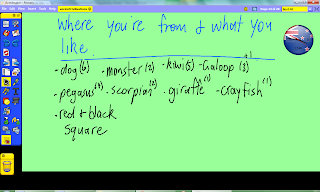 where you're from & what you
like.
+1
- dog(6) - monster(2) - kiwi(5) - Galoop(3)
- pegasus - scorpian(2) - giraffe(1) - crayfish(1)
- red & black
square